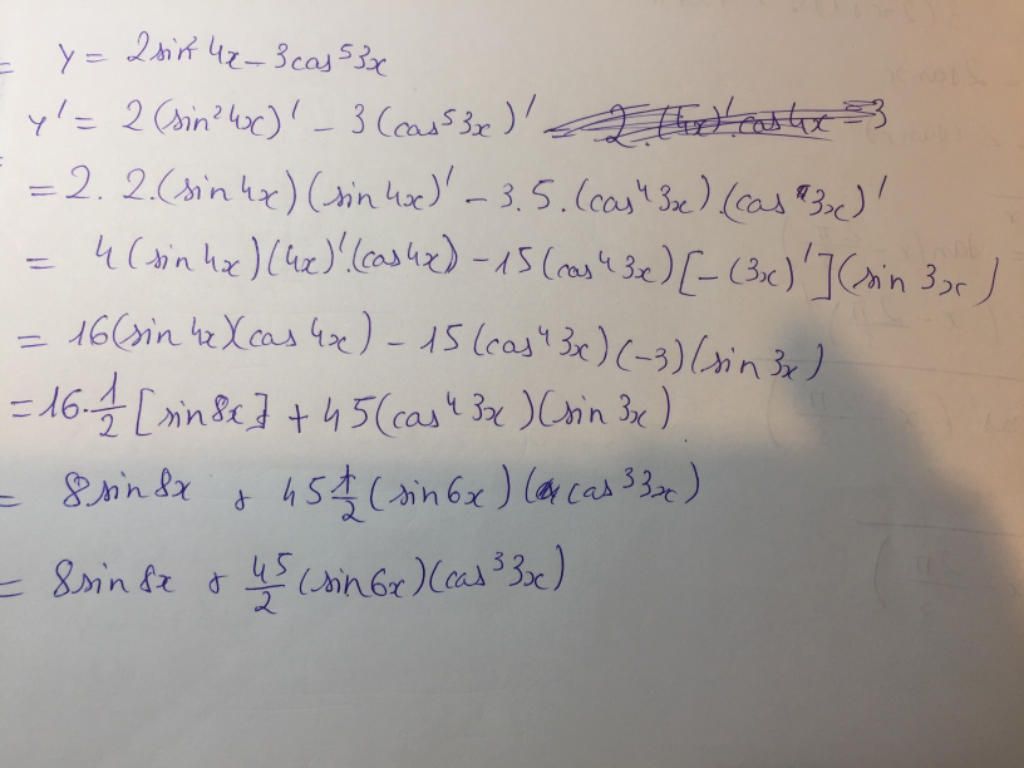 = y = 2sin² 4x - 3cos⁵3x
y' = 2(sin²4x)' - 3(cos⁵3x)'
= 2. 2.(sin4x)(sin4x)' - 3.5.(cos⁴3x).(cos 3x)'
= 4(sin4x)(4x)'.(cos4x) - 15(cos⁴3x)[-(3x)'](sin 3x)
= 16(sin4x)(cos4x) - 15(cos⁴3x)(-3)(sin3x)
= 16.1/2 [sin8x] + 45(cos⁴3x)(sin3x)
= 8sin8x + 45 1/2 (sin6x)(cos³3x)
= 8sin8x + 45/2 (sin6x)(cos³3x)